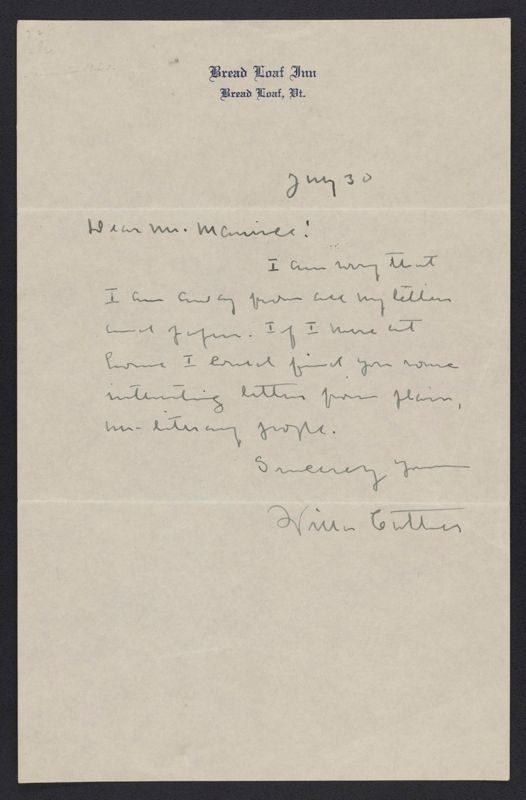 Bread Loaf Inn
Bread Loaf, Vt.
July 30
Dear Mr.
I am sorry that
I am away from all my letters
and papers. If I were at
home I could find you some
interesting letters from plain,
un-literary people.
Sincerely yours
Willa Cather